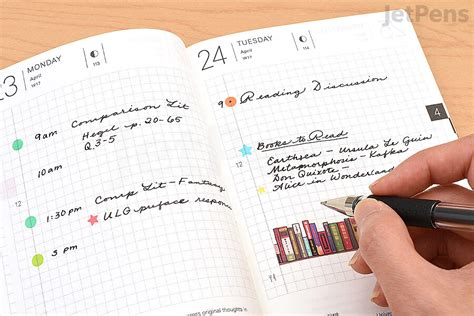 JetPens
23 MONDAY
April
W17
113
9am Comparison Lit
Hegel - p. 20-65
Q. 3-5
10am
12
1:30pm Comp Lit - Fantasy
ULG preface respon
3 pm
24 TUESDAY
April
W17
9 Reading Discussion
4
Books to Read
Earthsea - Ursula Le Guin
Metamorphosis - Kafka
Don Quixote -
12
Alice in Wonderland
original thoughts